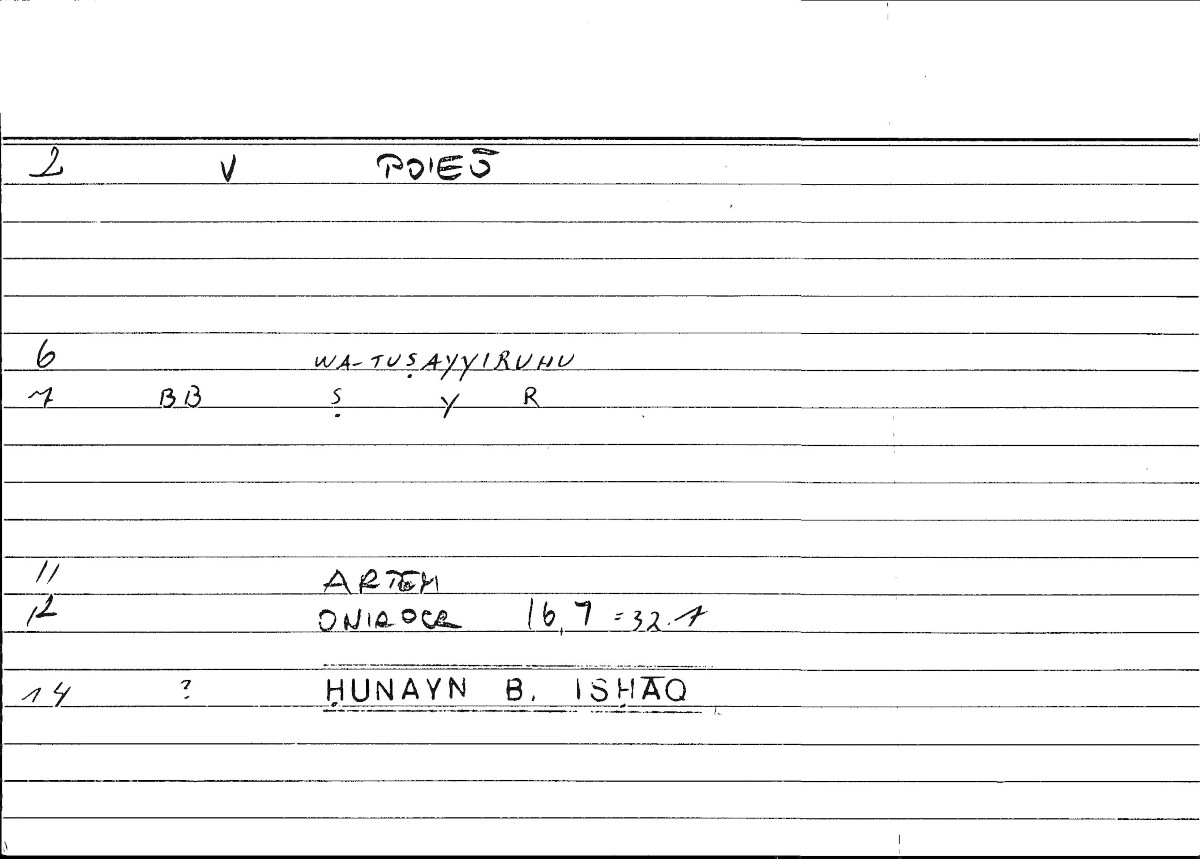 2 V POIEŌ
6 WA-TUṢAYYIRUHU
7 BB Ṣ Y R
11 ARTEM
12 ONIROCR 16,7 = 32.1
14 ? ḤUNAYN B. ISḤĀQ